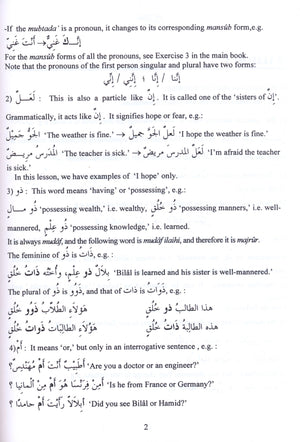 -If the mubtada' is a pronoun, it changes to its corresponding mansûb form,e.g.
أَنْتَ غَنِيٌّ → إِنَّكَ غَنِيٌّ
For the mansûb forms of all the pronouns, see Exercise 3 in the main book.
Note that the pronouns of the first person singular and plural have two forms:
إِنَّنِي / إِنِّي ؛ إِنَّنَا / إِنَّا
2) لَعَلَّ : This is also a particle like إِنَّ. It is called one of the 'sisters of إِنَّ'.
Grammatically, it acts like إِنَّ. It signifies hope or fear, e.g.:
الْجَوُّ جَمِيلٌ 'The weather is fine.' → لَعَلَّ الْجَوَّ جَمِيلٌ 'I hope the weather is fine.'
الْمُدَرِّسُ مَرِيضٌ 'The teacher is sick.' → لَعَلَّ الْمُدَرِّسَ مَرِيضٌ 'I'm afraid the teacher
is sick.'
In this lesson, we have examples of 'I hope' only.
3) ذُو : This word means 'having' or 'possessing', e.g.:
ذُو مَالٍ 'possessing wealth,' i.e. wealthy, ذُو خُلُقٍ 'possessing manners,' i.e. well-
mannered, ذُو عِلْمٍ 'possessing knowledge,' i.e. learned.
It is always mudâf, and the following word is mudâf ilaihi, and therefore it is majrûr.
The feminine of ذُو is ذَاتُ, e.g.: بِلَالٌ ذُو عِلْمٍ، وَأُخْتُهُ ذَاتُ خُلُقٍ 'Bilâl is learned and his sister is well-mannered.'
The plural of ذُو is ذَوُو, and that of ذَاتُ is ذَوَاتُ, e.g. :
هَذَا الطَّالِبُ ذُو خُلُقٍ هَؤُلَاءِ الطُّلَّابُ ذَوُو خُلُقٍ
هَذِهِ الطَّالِبَةُ ذَاتُ خُلُقٍ هَؤُلَاءِ الطَّالِبَاتُ ذَوَاتُ خُلُقٍ
4) أَمْ: It means 'or',but only in an interrogative sentence , e.g. :
أَطَبِيبٌ أَنْتَ أَمْ مُهَنْدِسٌ؟ 'Are you a doctor or an engineer?'
أَمِنْ فَرَنْسَا هُوَ أَمْ مِنْ أَلْمَانِيَا ؟ 'Is he from France or Germany?'
أَبِلَالًا رَأَيْتَ أَمْ حَامِدًا ؟ 'Did you see Bilâl or Hamid?'
2